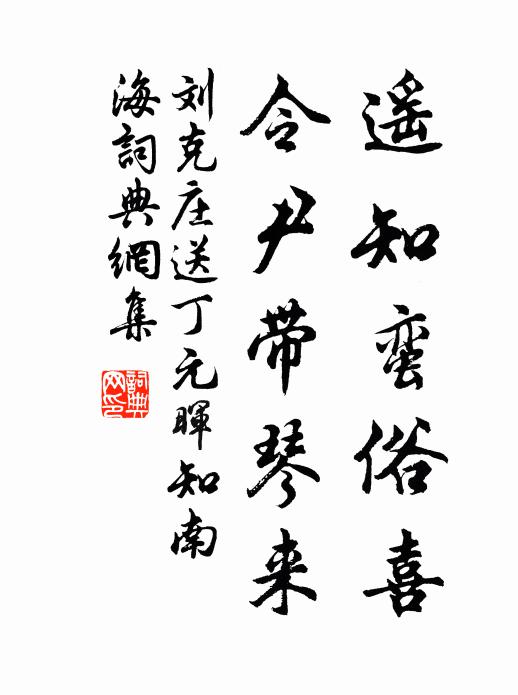 遥知蛮俗喜
令尹带琴来
刘克庄送丁元暉知南
海詞典網集
詞典
网印